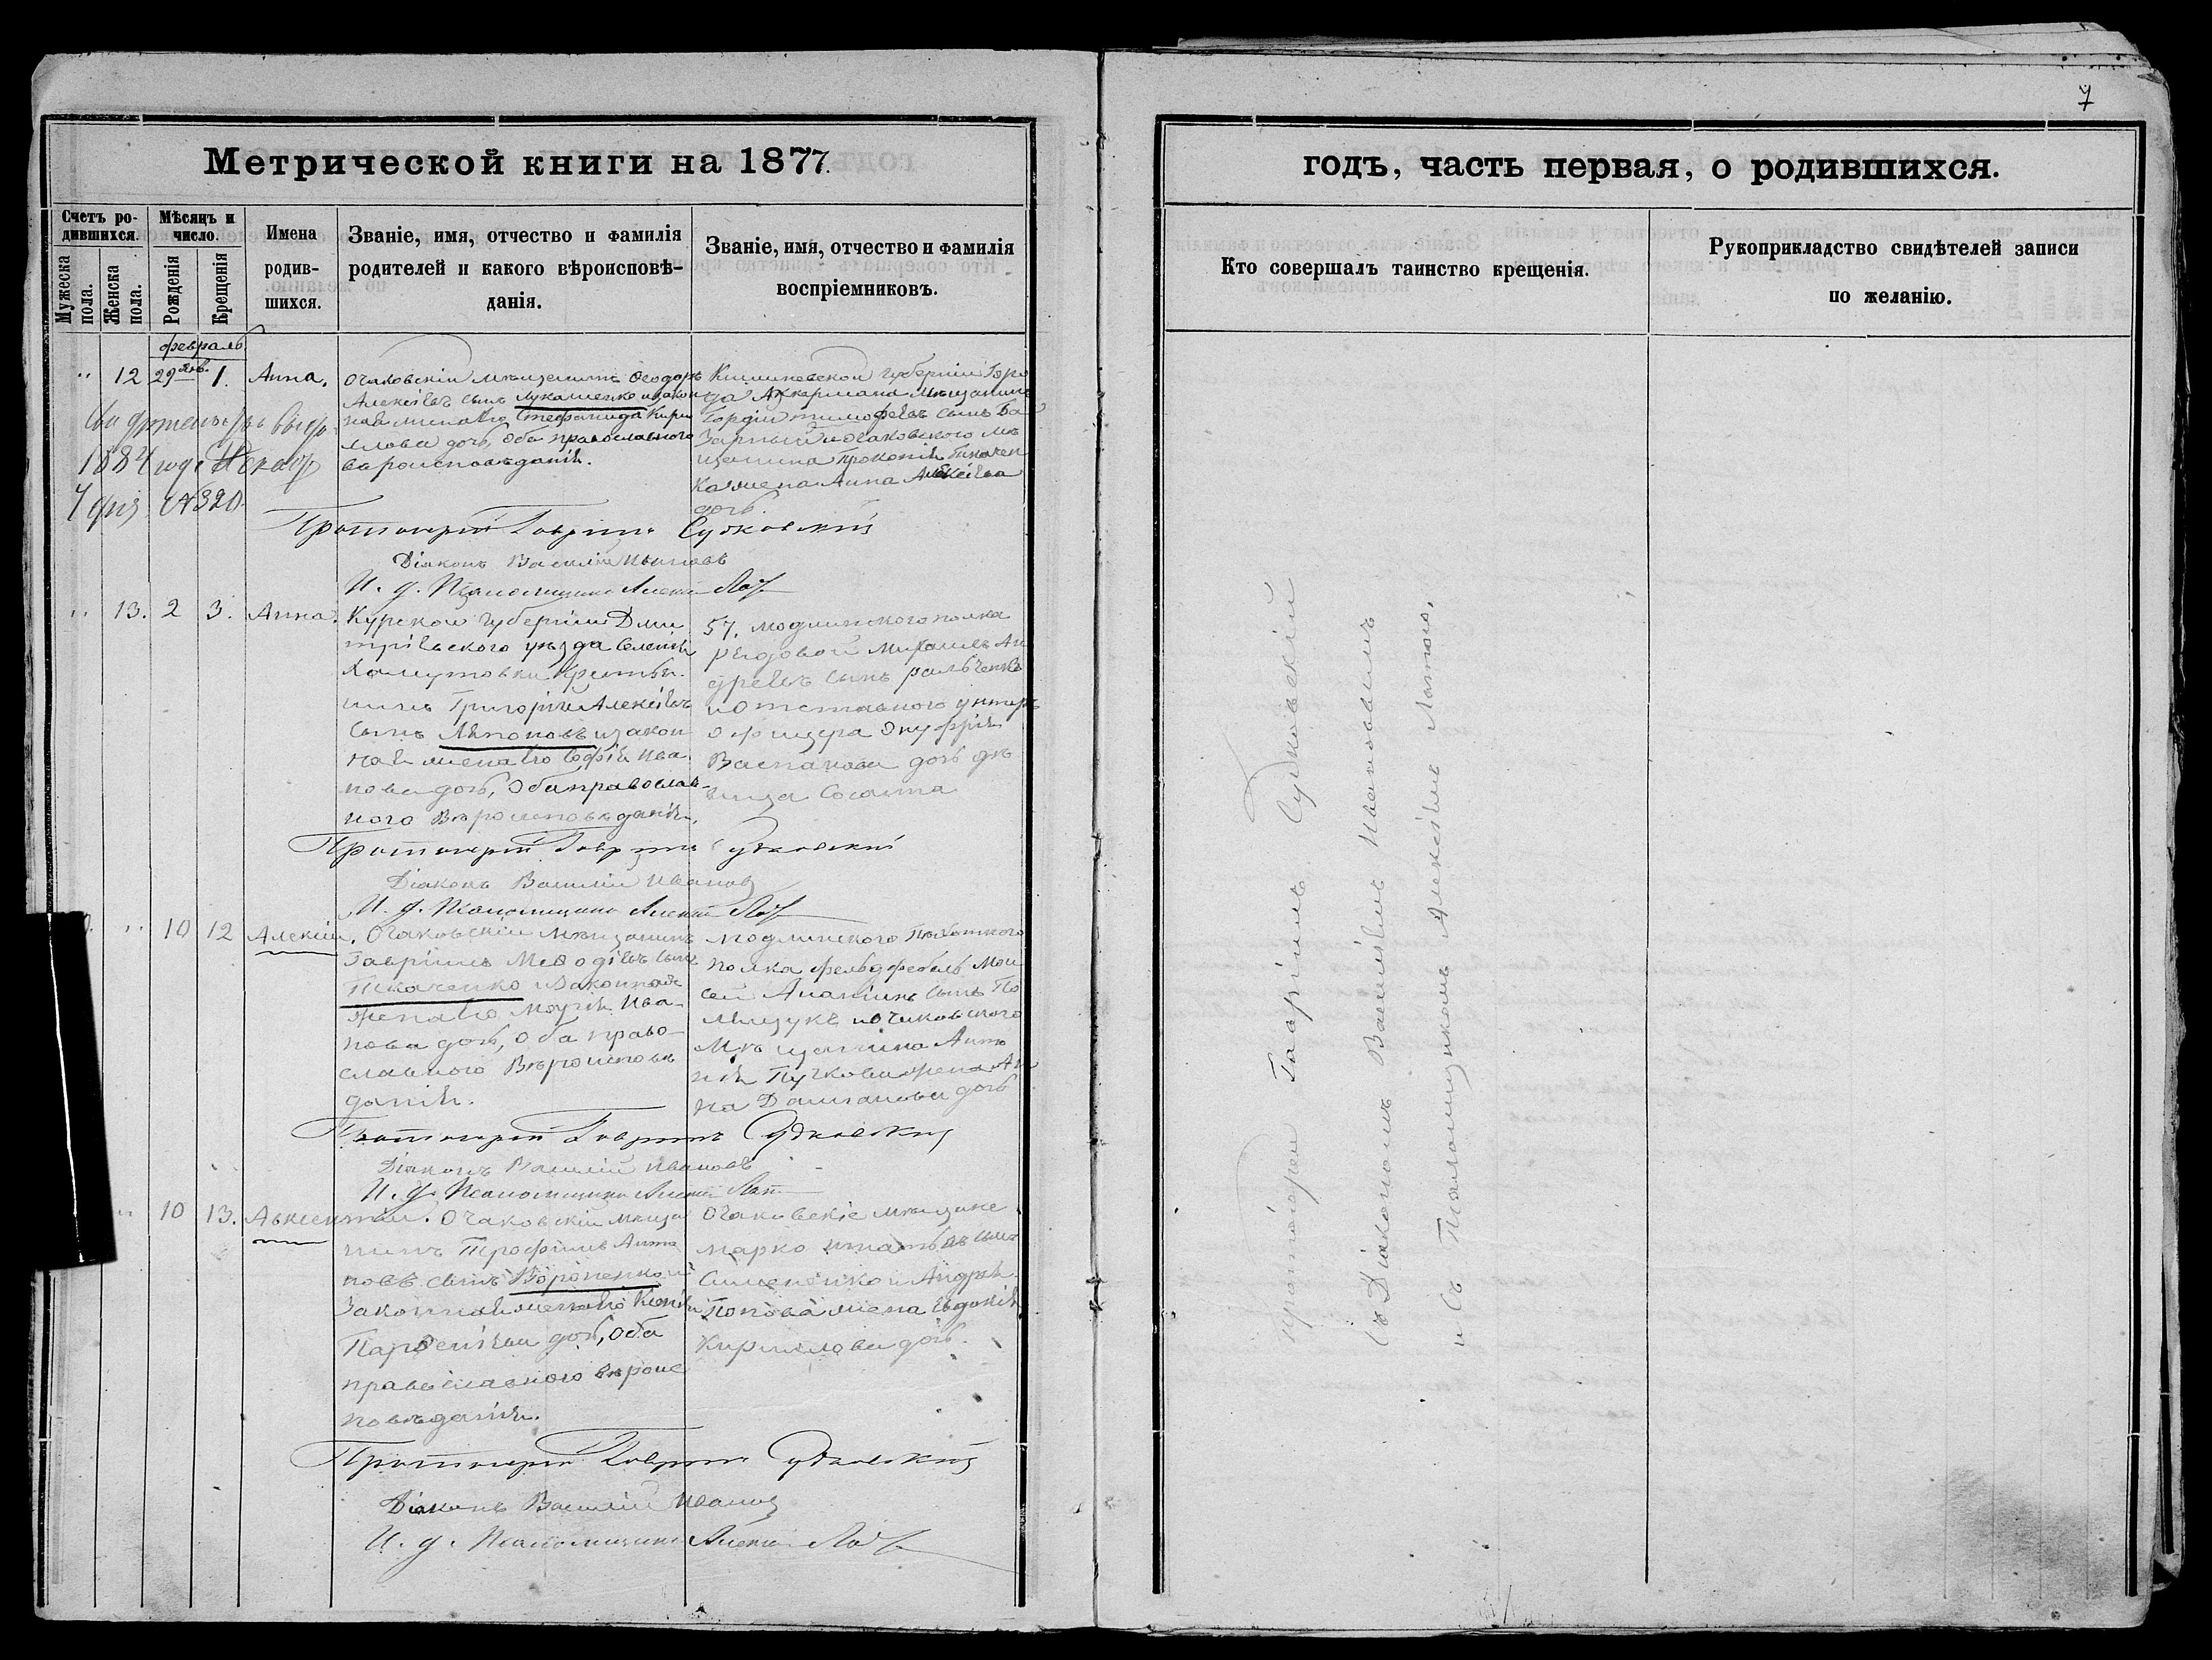 7
Метрической книги на 1877.
годъ, часть первая, о родившихся.
Счетъ ро-
дившихся.
Мужеска
пола.
Женска
пола.
Мѣсяцъ и
число.
Рожденія
Крещенія
Имена
родив-
шихся.
Званіе, имя, отчество и фамилія
родителей и какого вѣроисповѣ-
данія.
Званіе, имя, отчество и фамилія
воспріемниковъ.
Кто совершалъ таинство крещенія.
Рукоприкладство свидѣтелей записи
по желанію.
февраль
" 12 29 янв. 1. Анна.
Очаковскій мѣщанинъ Ѳеодоръ
Алексіевъ сынъ Лукашенко и закон
ная жена его Стефанида Кири
лова дочь, оба православного
вѣроисповѣданія.
Кишиневской губерніи Горо
да Аккермана мѣщанинъ
Гордій Тимофеевъ сынъ Ба
зарный и очаковского мѣ
щанина Прокопія
жена Анна Алексіева
дочь.
1884 года
№ 320.
Протоіерей Гавріилъ Судковскій
Діаконъ Василій Ивановъ
И. д. Псаломщика Алексій Лот
" 13. 2 3. Анна.
Курской губерніи Дми
тріевского уѣзда селенія
Хомутовки крестья
нинъ Григорій Алексіевъ
сынъ Леоновъ и закон
ная жена его Софія Ива
нова дочь, оба православ-
ного вѣроисповѣданія.
57. Модлинского полка
рядовой Михаилъ Ан
дреевъ сынъ
и отставного унтеръ
офицера Онуфрія
дочь дѣ
вица
Протоіерей Гавріилъ Судковскій
Діаконъ Василій Ивановъ
И. д. Псаломщика Алексій Лот
" 10 12 Алексій.
Очаковскій мѣщанинъ
Гавріилъ Меѳодіевъ сынъ
Ткаченко и законная
жена его Марія Ива-
нова дочь, оба право-
славного вѣроисповѣ
данія.
Модлинского пѣхотного
полка фельдфебель Мои
сей сынъ По
лищукъ и очаковского
мѣщанина Анто
нія жена Ан
на дочь
Протоіерей Гавріилъ Судковскій
Діаконъ Василій Ивановъ
И. д. Псаломщика Алексій Лот
" 10 13. Авксентій.
Очаковскій мѣща
нинъ Трофимъ Анто
новъ сынъ Вороненко и
законная жена его Ксенія
Парѳеніева дочь, оба
православного вѣроис
повѣданія.
Очаковскіе мѣщане
Марко Игнатьевъ сынъ
Симоненко и Андрея
Попова жена Евдокія
Кириллова дочь.
Протоіерей Гавріилъ Судковскій
Діаконъ Василій Ивановъ
И. д. Псаломщика Алексій Лот
Протоіерей Гавріилъ Судковскій
съ Діакономъ Василіемъ Ивановымъ
и съ Псаломщикомъ Алексіемъ Лотого.